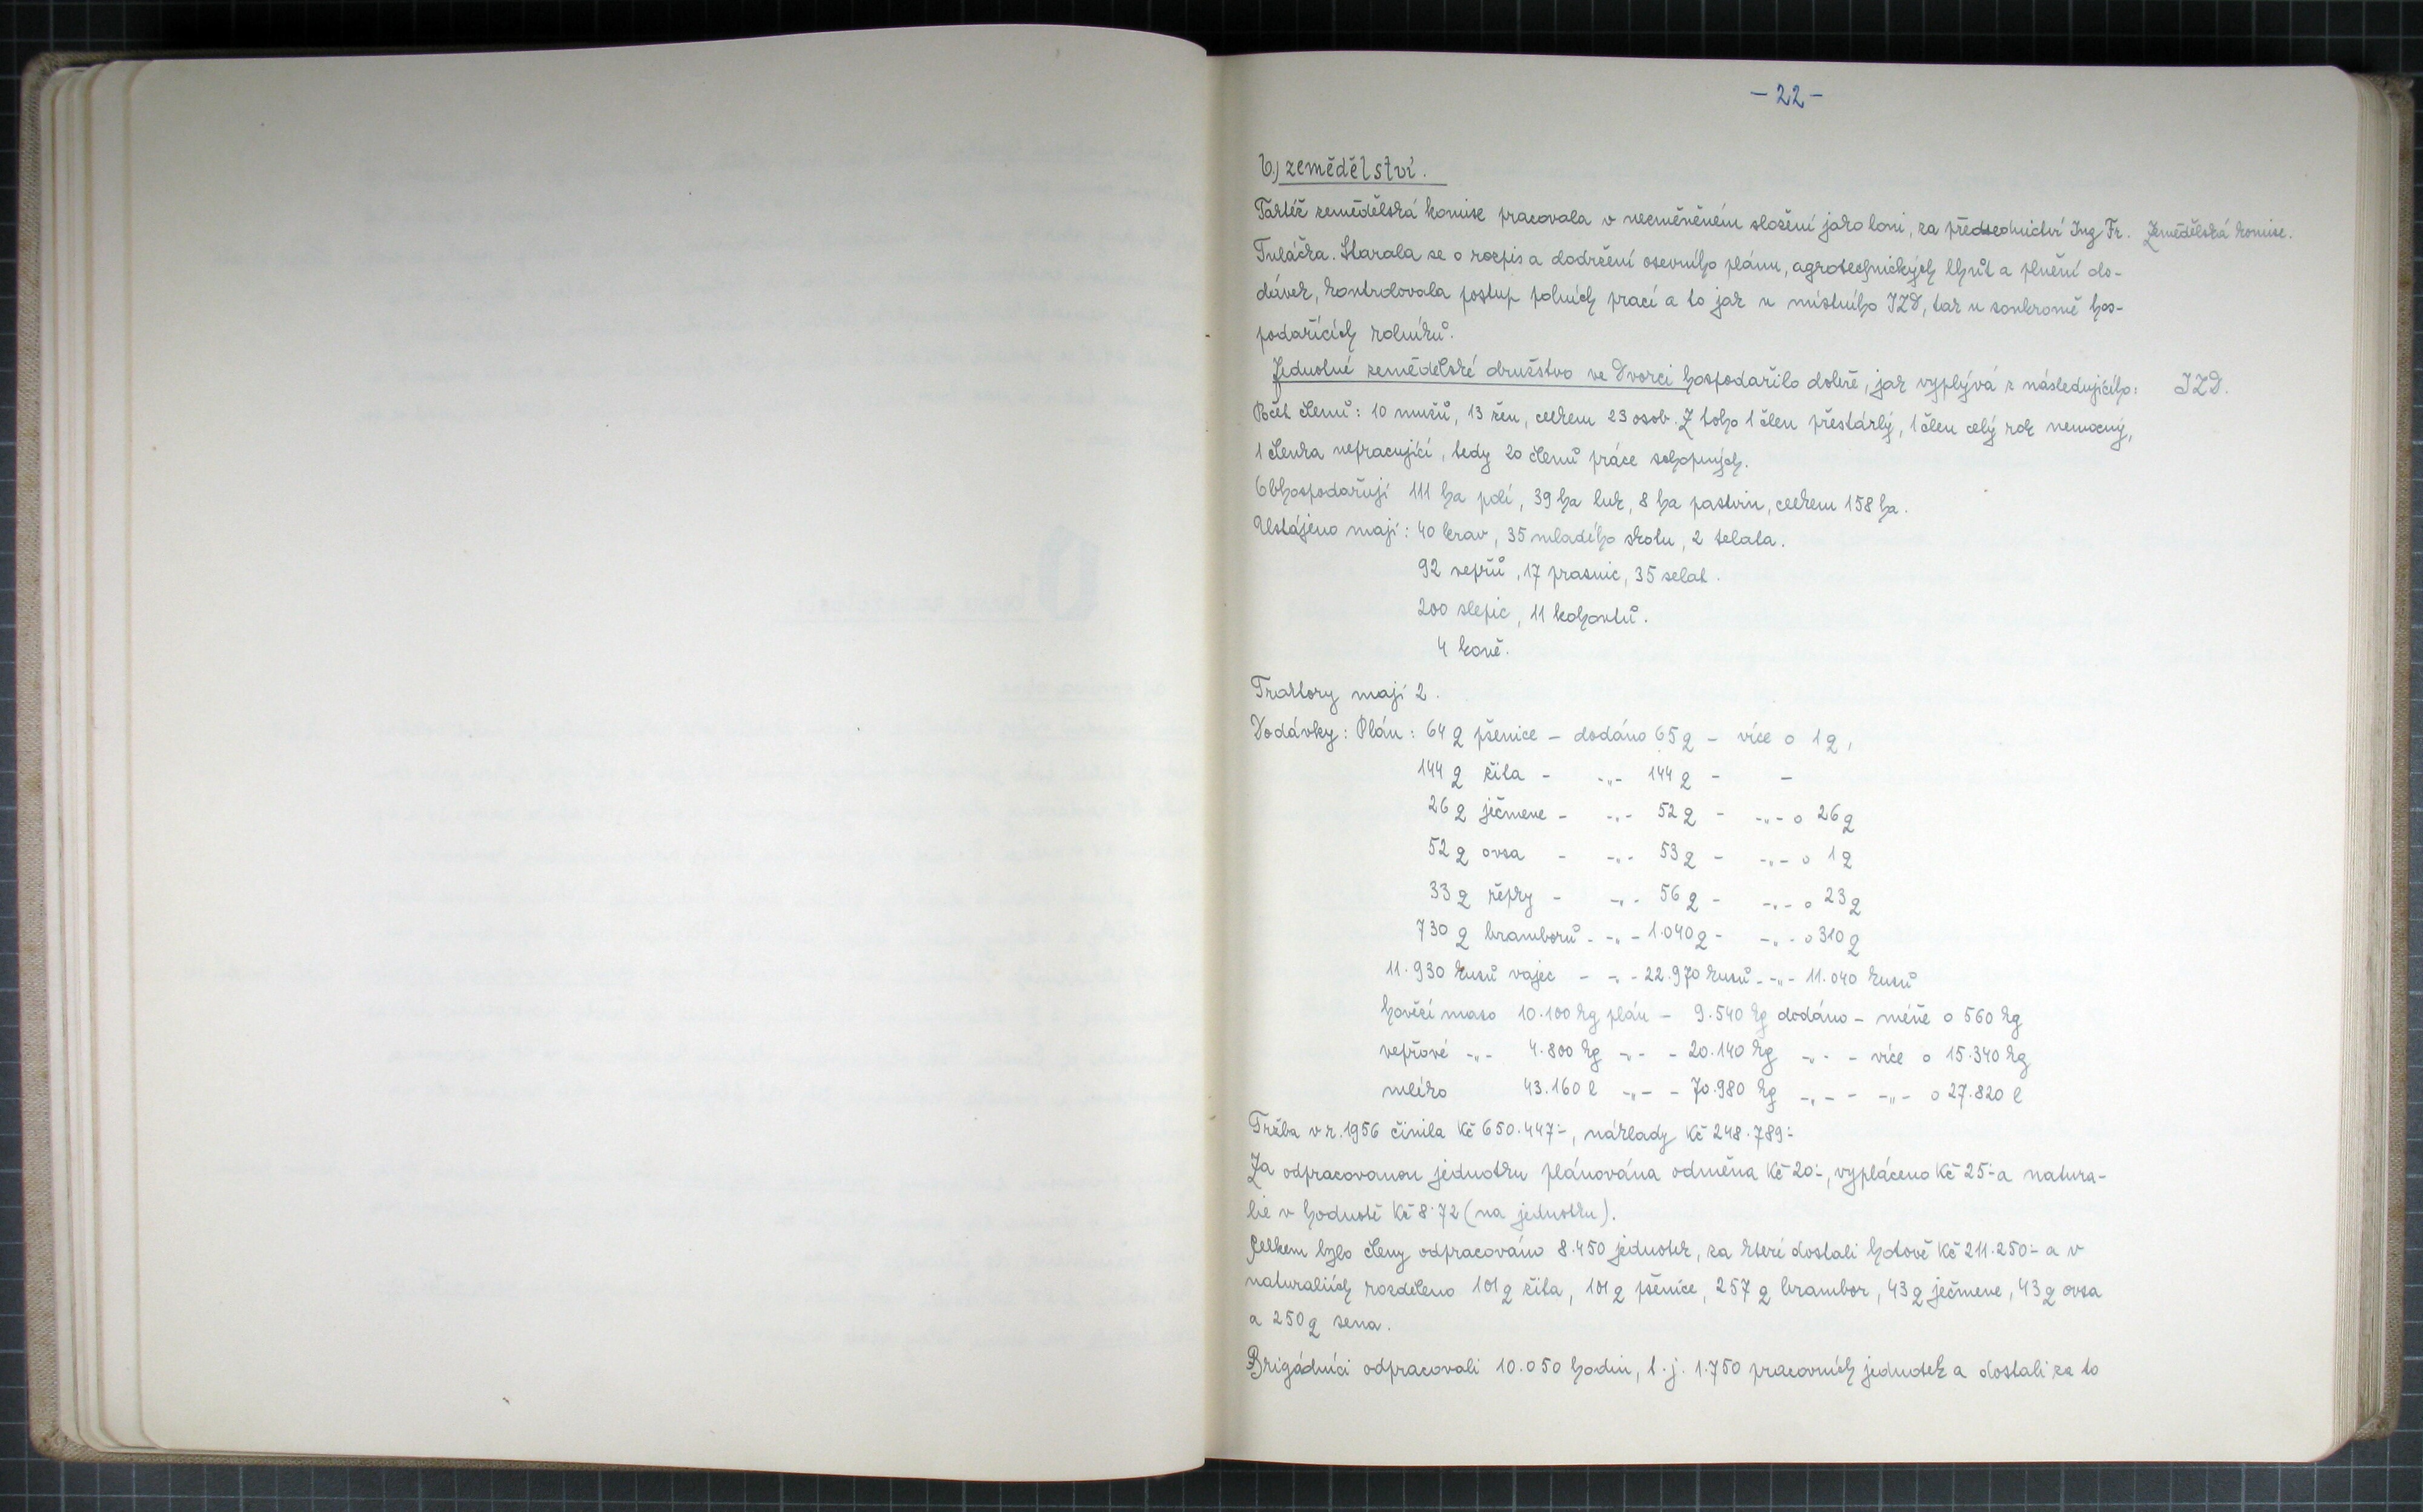 - 22 -
b,) zemědělství.
Taktéž zemědělská komise pracovala v nezměněném složení jako loni, za předsednictví Ing Fr. Zemědělská komise.
Tuláčka. Starala se o rozpis a dodržení osevního plánu, agrotechnických lhůt a plnění do-
dávek, kontrolovala postup polních prací a to jak u místního JZD, tak u soukromě hos-
podařících rolníků.
Jednotné zemědělské družstvo ve Dvorci hospodařilo dobře, jak vyplývá z následujícího: JZD.
Počet členů: 10 mužů, 13 žen, celkem 23 osob. Z toho 1 člen přestárlý, 1 člen celý rok nemocný,
1 členka nepracující, tedy 20 členů práce schopných.
Obhospodařují 111 ha polí, 39 ha luk, 8 ha pastvin, celkem 158 ha.
Ustájeno mají: 40 krav, 35 mladého skotu, 2 telata.
92 vepřů, 17 prasnic, 35 selat.
200 slepic, 11 kohoutů.
4 koně.
Traktory mají 2.
Dodávky: Plán: 64 q pšenice - dodáno 65 q - více o 1 q,
144 q žita - -„- 144 q - -
26 q ječmene - -„- 52 q - -„- o 26 q
52 q ovsa - -„- 53 q - -„- o 1 q
33 q řepky - -„- 56 q - -„- o 23 q
730 q bramborů - -„- 1.040 q - -„- o 310 q
11.930 kusů vajec - -„- 22.970 kusů - -„- 11.040 kusů
hovězí maso 10.100 kg plán - 9.540 kg dodáno - méně o 560 kg
vepřové -„- 4.800 kg -„- - 20.140 kg -„- - více o 15.340 kg
mléko 43.160 l -„- - 70.980 kg -„- - -„- o 27.820 l
Tržba v r. 1956 činila Kč 650.447·-, náklady Kč 248.789·-
Za odpracovanou jednotku plánována odměna Kč 20·-, vypláceno Kč 25·- a natura-
lie v hodnotě Kč 8·72 (na jednotku).
Celkem bylo členy odpracováno 8.450 jednotek, za které dostali hotově Kč 211.250·- a v
naturaliích rozděleno 101 q žita, 101 q pšenice, 257 q brambor, 43 q ječmene, 43 q ovsa
a 250 q sena.
Brigádníci odpracovali 10.050 hodin, t.j. 1.750 pracovních jednotek a dostali za to